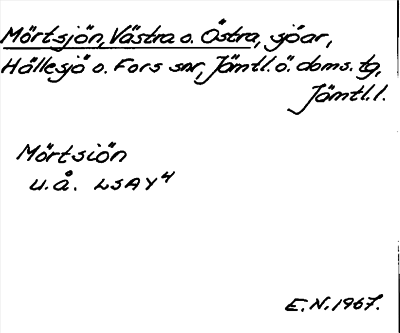 Mörtsjön, Västra o. Östra, sjöar,
Hällesjö o. Fors snr, Jämtl. ö. doms. tg,
Jämtl. l.
Mörtsiön
u. å. LSA Y4
E. N. 1967.